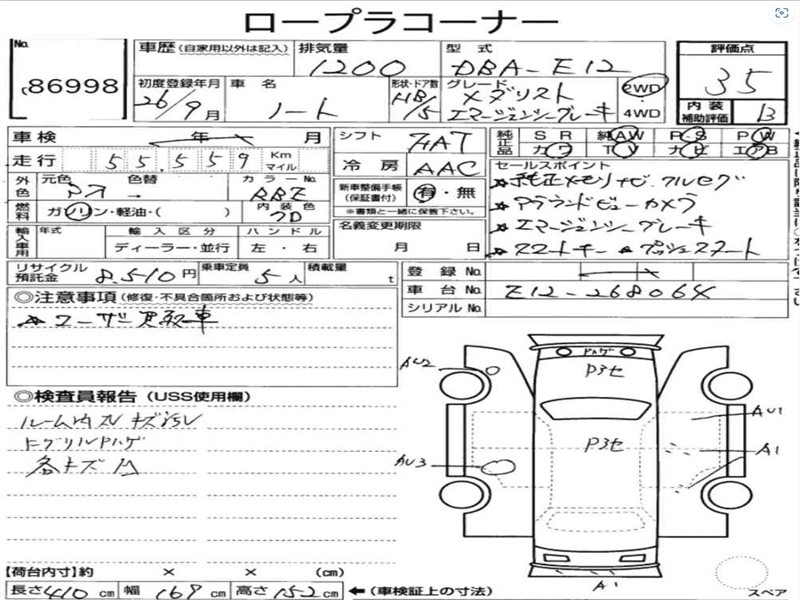 ロープラコーナー
No. 86998
車歴 (自家用以外は記入) 排気量 1200 型式 DBA-E12 評価点 35
初度登録年月 26/9月 車名 ノート 形状・ドア数 HB/5 グレード メダリスト エマージェンシーブレーキ 2WD 4WD 内装補助評価 B
車検 年 月 シフト FAT 純正品 SR 純AW PS PW
走行 55,559 Km マイル 冷房 AAC カワ TV ナビ エアB
外色 元色 色替 カラーNo. RBE 新車整備手帳 (保証書付) 有・無 ※書類と一緒に保管下さい。
燃料 ガソリン・軽油・( ) 内装色
セールスポイント
★純正メモリナビ.フルセグ
★アラウンドビューカメラ
★エマージェンシーブレーキ
★スマートキー ★プッシュスタート
輸入車用 年式 輸入区分 ディーラー・並行 ハンドル 左・右 名義変更期限 月 日
リサイクル預託金 8,510円 乗車定員 5人 積載量 t 登録No.
車台No. Z12-268064
シリアルNo.
◎注意事項 (修復・不具合箇所および状態等)
★ユーザー買取車
◎検査員報告 (USS使用欄)
ルーム内スレ キズ
ドアグリルPハゲ
各キズ凹
Pハゲ
P3セ
AU2
AU1
P3セ
A1
AU3
A1
スペア
【荷台内寸】約 × × (cm)
長さ410cm 幅169cm 高さ152cm ←(車検証上の寸法)